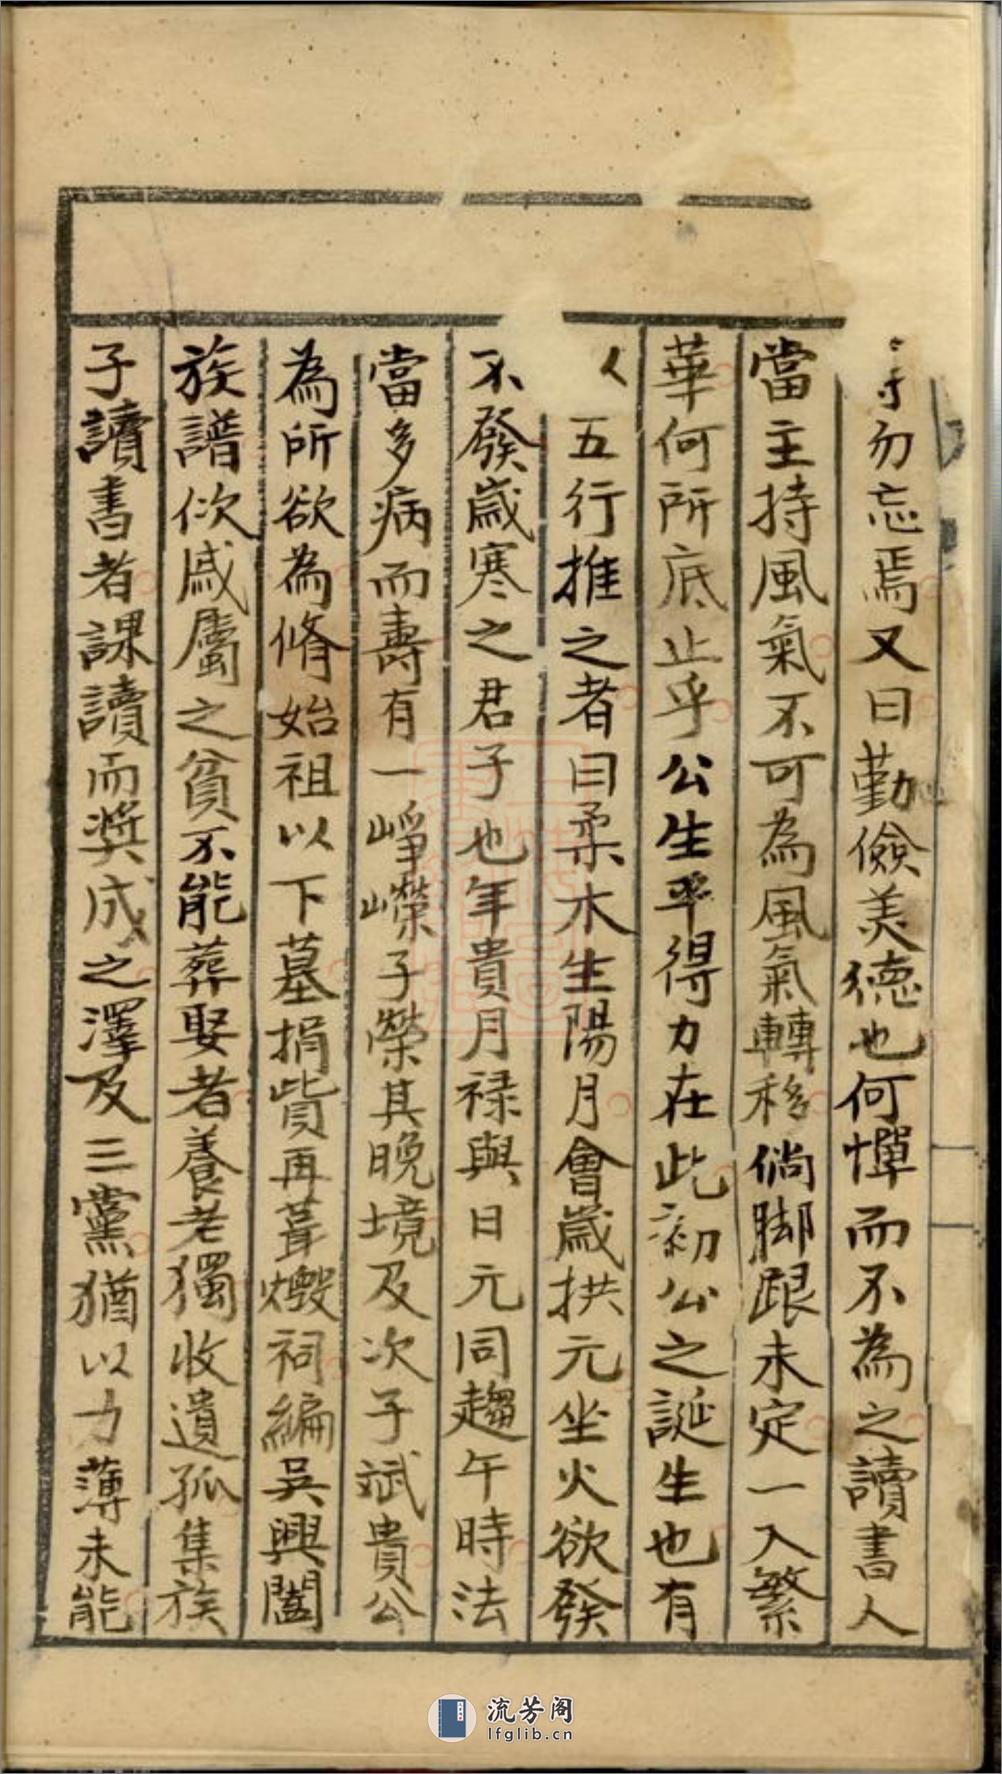 勿忘焉又曰勤儉美德也何憚而不為之讀書人
當主持風氣不可為風氣轉移倘脚跟未定一入繁
華何所底止乎公生平得力在此初公之誕生也有
五行推之者曰柔木生陽月會歲拱元坐火欲發
不發歲寒之君子也年貴月祿與日元同趨午時法
當多病而壽有一崢嶸子榮其晚境及次子斌貴公
為所欲為脩始祖以下墓捐貲再葺燬祠編吳興闔
族譜佽戚屬之貧不能葬娶者養老獨收遺孤集族
子讀書者課讀而獎成之澤及三黨猶以力薄未能
流芳阁
lfglib.cn